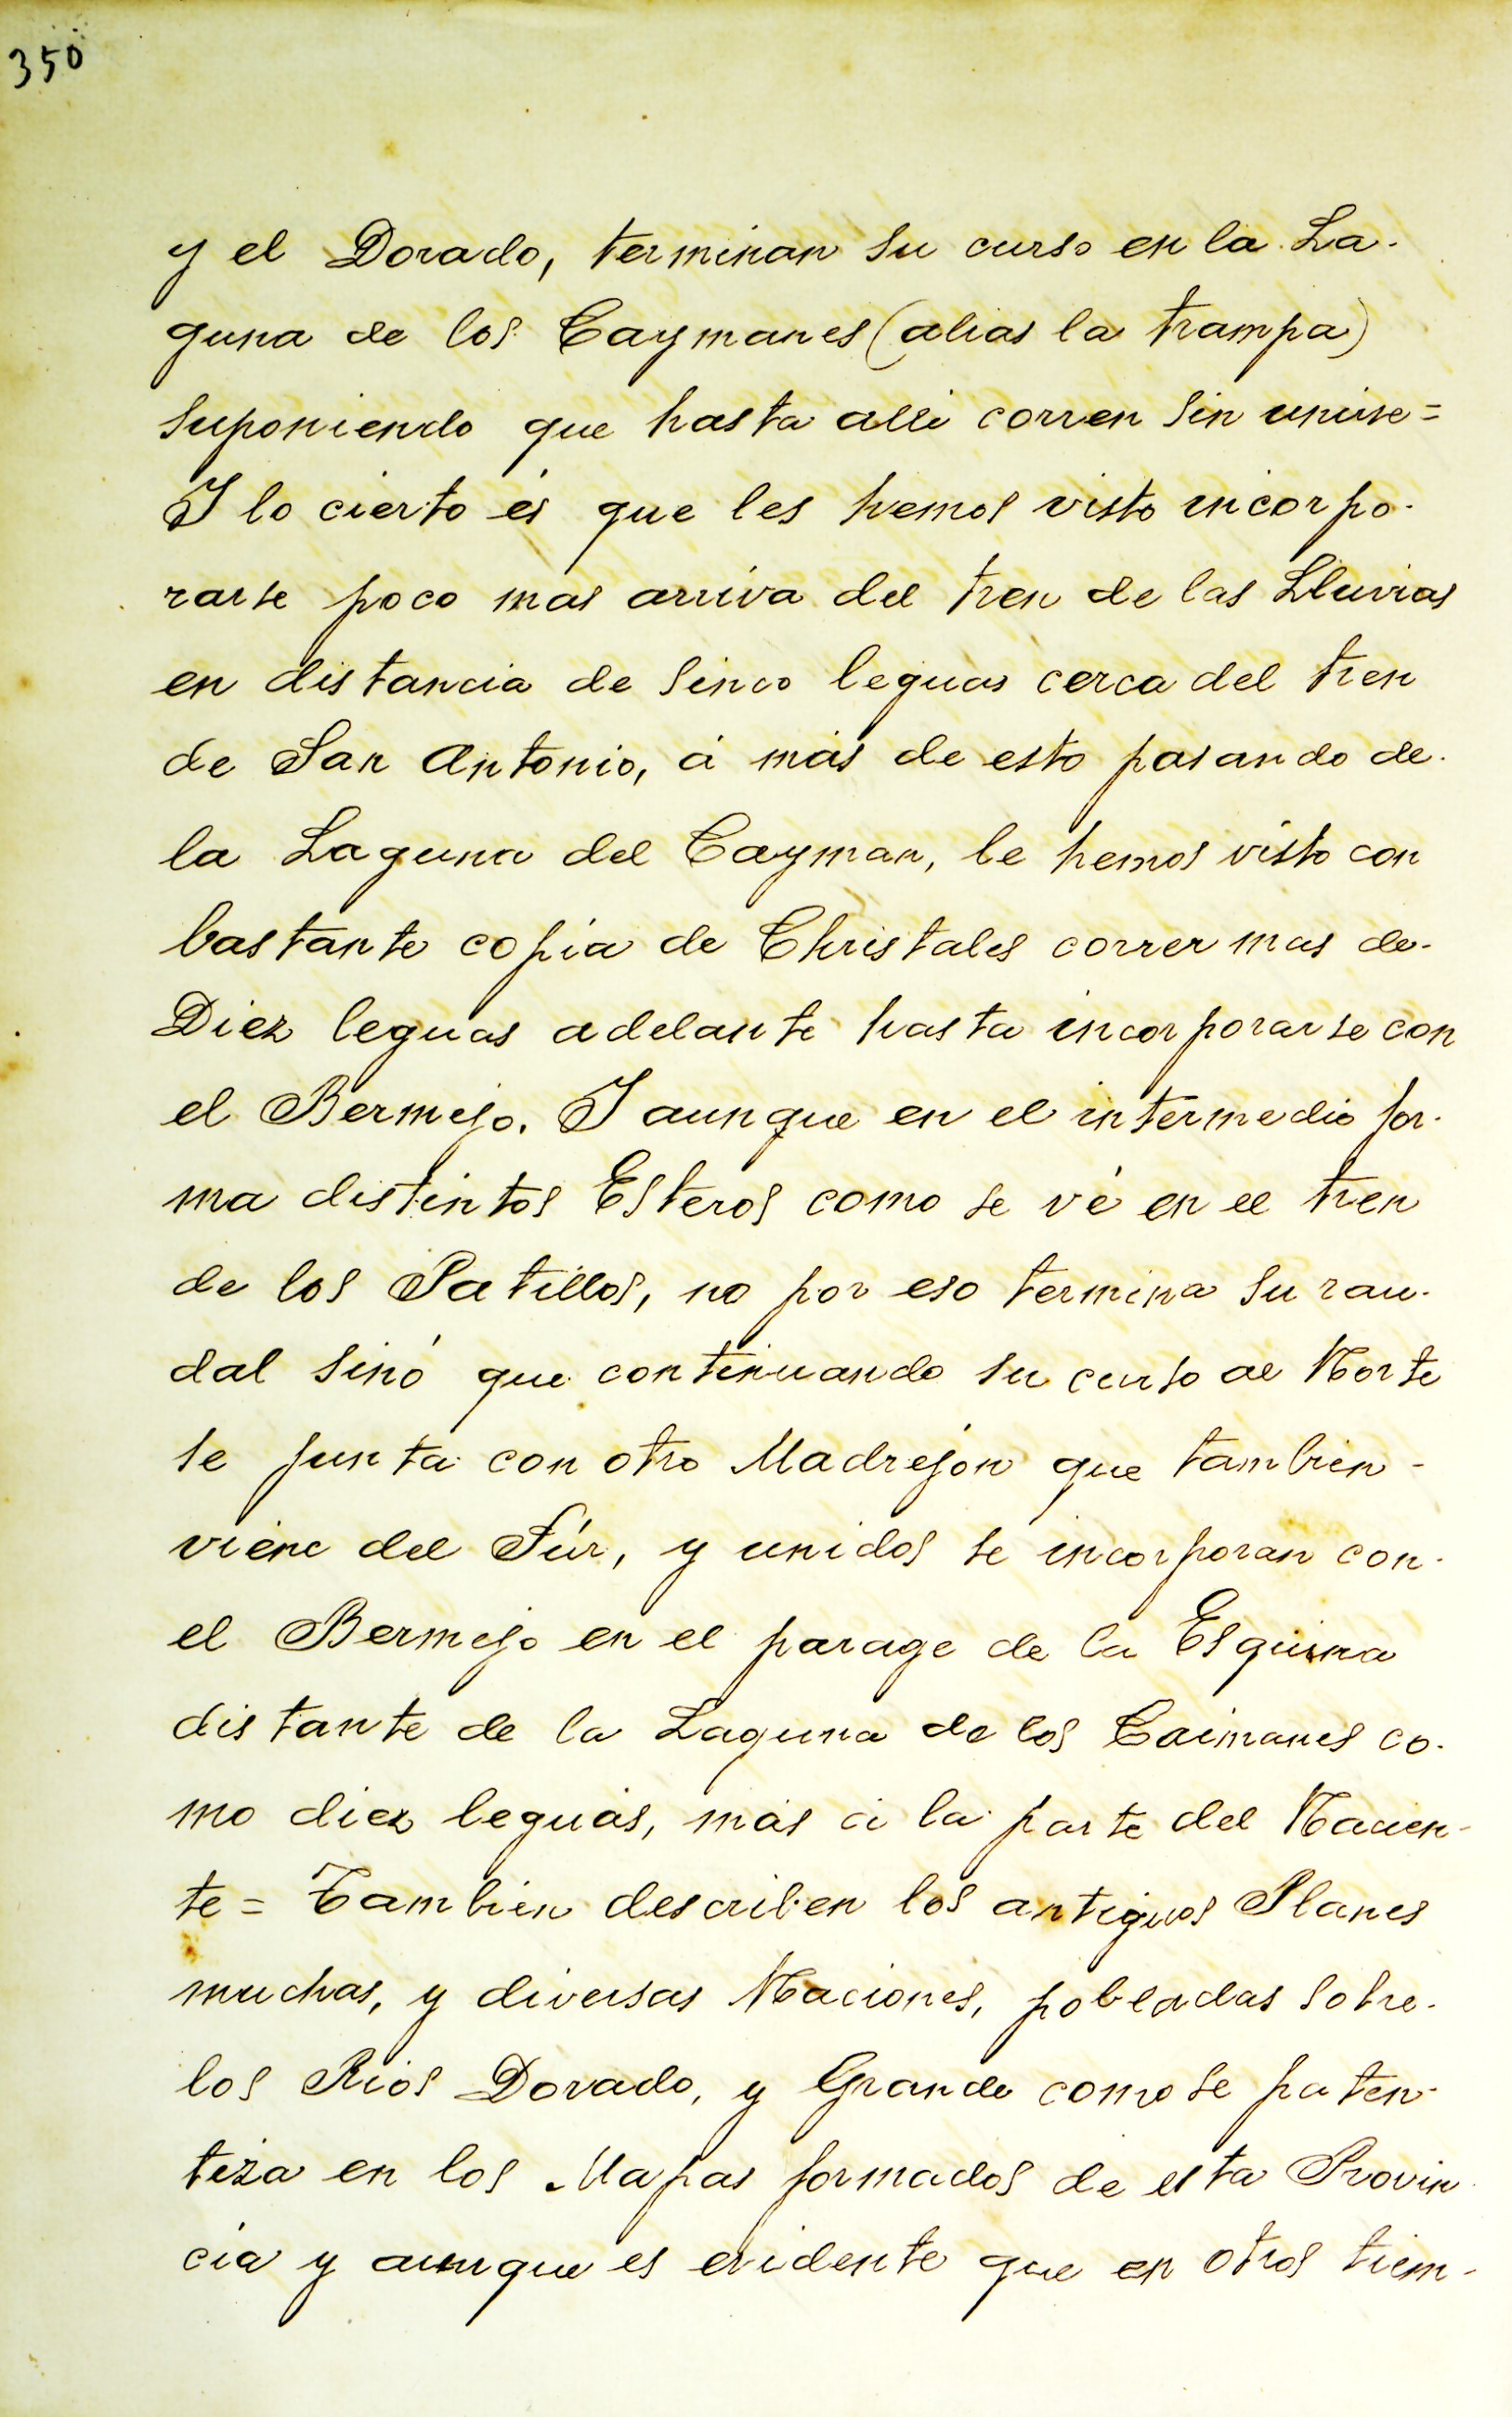 350
y el Dorado, terminan su curso en la La-
guna de los Caymanes (alias la trampa)
suponiendo que hasta alli corren sin unirse=
I lo cierto és que les hemos visto incorpo-
rarse poco mas arriva del tren de las Lluvias
en distancia de sinco leguas cerca del tren
de San Antonio, á más de esto pasando de-
la Laguna del Cayman, le hemos visto con
bastante copia de Christales correr mas de-
Diez leguas adelante hasta incorporarse con
el Bermejo. I aunque en el intermedio for-
ma distintos Esteros como se vé en el tren
de los Patillos, no por eso termina su rau-
dal sinó que continuando su curso al Norte
se junta con otro Madrejón que tambien-
viene del Súr, y unidos se incorporan con-
el Bermejo en el parage de la Esquina
distante de la Laguna de los Caimanes co-
mo diez leguás, más á la parte del Nacien-
te= Tambien describen los antiguos Planes
muchas, y diversas Naciones, pobladas sobre-
los Rios Dorado, y Grande como se paten-
tiza en los Mapas formados de esta Provin-
cia y aunque es evidente que en otros tiem-